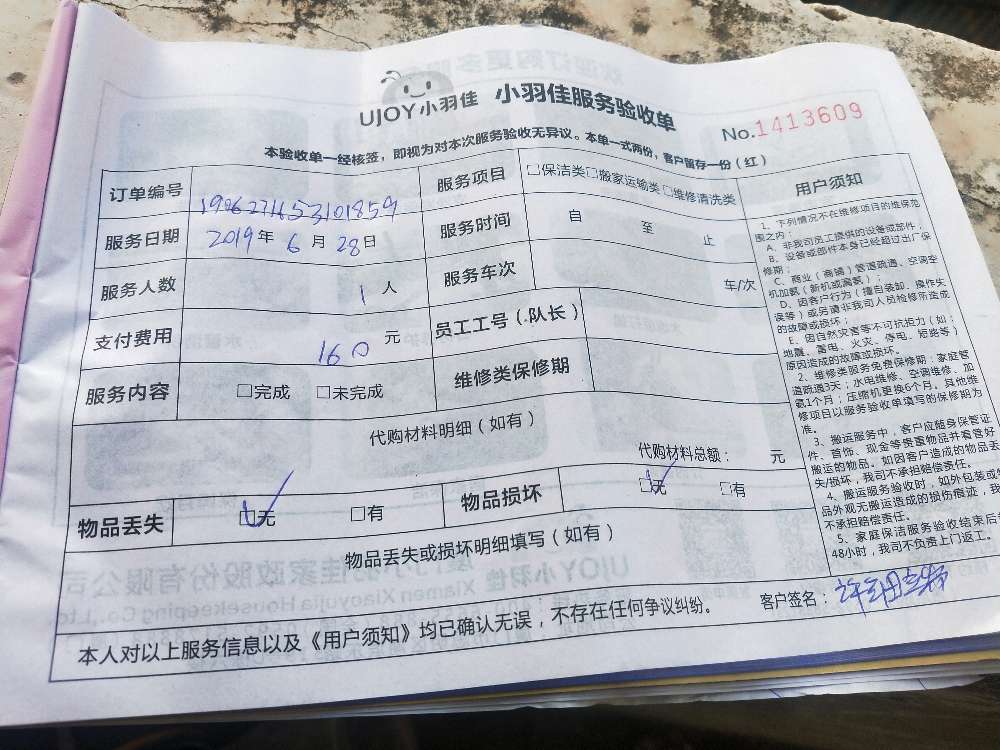 UJOY小羽佳 小羽佳服务验收单
No.1413609
本验收单一经核签，即视为对本次服务验收无异议。本单一式两份，客户留存一份（红）
订单编号 1906271153101859 服务项目 □保洁类□搬家运输类□维修清洗类
服务日期 2019年6月28日 服务时间 自 至 止
服务人数 1人 服务车次 车/次
支付费用 160元 员工工号（.队长）
服务内容 □完成 □未完成 维修类保修期
代购材料明细（如有）
代购材料总额： 元
物品丢失 □无 □有 物品损坏 □无 □有
物品丢失或损坏明细填写（如有）
本人对以上服务信息以及《用户须知》均已确认无误，不存在任何争议纠纷。 客户签名：
用户须知
1、下列情况不在维修项目的维保范
围之内：
A、非我司员工提供的设备或部件；
B、设备或部件本身已经超过出厂保
修期；
C、商业（商铺）管道疏通、空调空
机加氨（新机或漏氨）；
D、因客户行为（擅自装卸、操作失
误等）或另请非我司人员检修所造成
的故障或损坏；
E、因自然灾害等不可抗拒力（如：
地震、蓄电、火灾、停电、短路等）
原因造成的故障或损坏。
2、维修类服务免费保修期：家庭管
道疏通3天；水电维修、空调维修、加
霸1个月；压缩机更换6个月。其他维
修项目以服务验收单填写的保修期为
准。
3、搬运服务中，客户应随身保管证
件、首饰、现金等贵重物品并看管好
搬运的物品。如因客户造成的物品丢
失/损坏，我司不承担赔偿责任。
4、搬运服务验收时，如外包装或
品外观无搬运造成的损伤痕迹，我
不承担赔偿责任。
5、家庭保洁服务验收结束后
48小时，我司不负责上门返工。